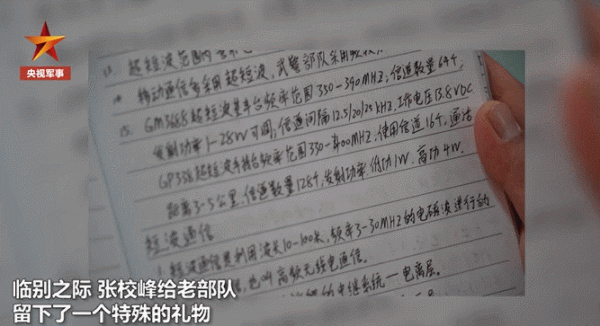 央视军事
13. 超短波范围内
14. 移动通信多采用超短波，武警部队采用
15. GM3688超短波车台频率范围350-390MHz，信道数量64个，
发射功率1-28W可调，信道间隔12.5/20/25KHZ，工作电压13.8VDC
GP338超短波手持台频率范围350-400MHz，使用信道16个，通话
距离3-5公里，信道数量128个，发射功率，低功1W，高功4W。
短波通信
1. 短波通信是利用波长10-100米，频率3-30MHZ的电磁波进行的
也叫高频无线电通信。
的中继系统—电离层。
临别之际 张校峰给老部队
留下了一个特殊的礼物